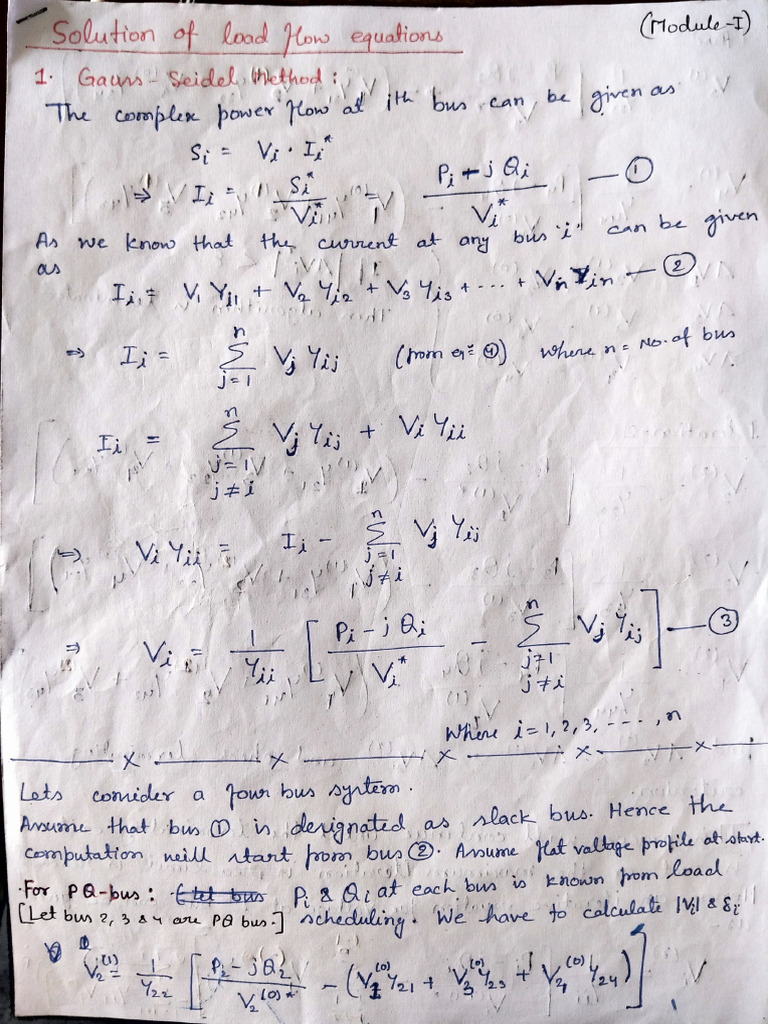 Solution of load flow equations
(Module-I)
1. Gauss-Seidel Method:
The complex power flow at ith bus can be given as
Si = Vi · Ii*
⇒ Ii = Si*/Vi* = (Pi - j Qi)/Vi* — ①
As we know that the current at any bus 'i' can be given
as
Ii = V1 Yi1 + V2 Yi2 + V3 Yi3 + --- + Vn Yin — ②
⇒ Ii = Σ_{j=1}^{n} Vj Yij (from eqn ④) where n = No. of bus
Ii = Σ_{j=1, j≠i}^{n} Vj Yij + Vi Yii
⇒ Vi Yii = Ii - Σ_{j=1, j≠i}^{n} Vj Yij
⇒ Vi = 1/Yii [ (Pi - j Qi)/Vi* - Σ_{j=1, j≠i}^{n} Vj Yij ] — ③
Where i = 1, 2, 3, ----, n
— x — x — x — x — x —
Lets consider a four bus system.
Assume that bus ① is designated as slack bus. Hence the
computation will start from bus ②. Assume flat valtage profile at start.
·For PQ-bus: (Let bus Pi & Qi at each bus is known from load
[Let bus 2, 3 & 4 are PQ bus.] scheduling. We have to calculate |Vi| & δi
V2^(1) = 1/Y22 [ (P2 - jQ2)/V2^(0)* - (V1^(0) Y21 + V3^(0) Y23 + V4^(0) Y24) ]